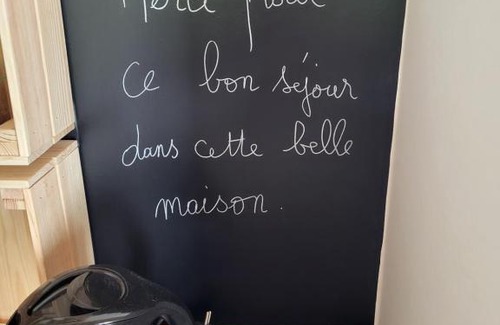 Merci pour
ce bon séjour
dans cette belle
maison.